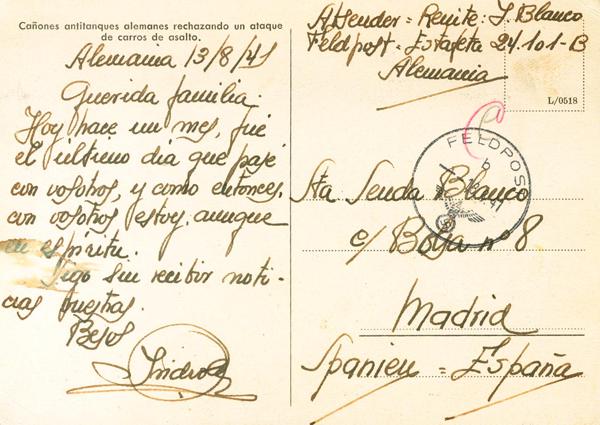 Cañones antitanques alemanes rechazando un ataque
de carros de asalto.
Alemania 13/8/41
Querida familia:
Hoy hace un mes, fué
el último dia que pasé
con vosotros, y como entonces,
con vosotros estoy, aunque
en espíritu.
Sigo sin recibir noti-
cias vuestras.
Besos
Isidro
Absender = Remite: I. Blanco
Feldpost = Estafeta 24.101-B
Alemania
L/0518
FELDPOST
b
41
Sta Senda Blanco
c/ Bolsa nº 8
Madrid
Spanien = España